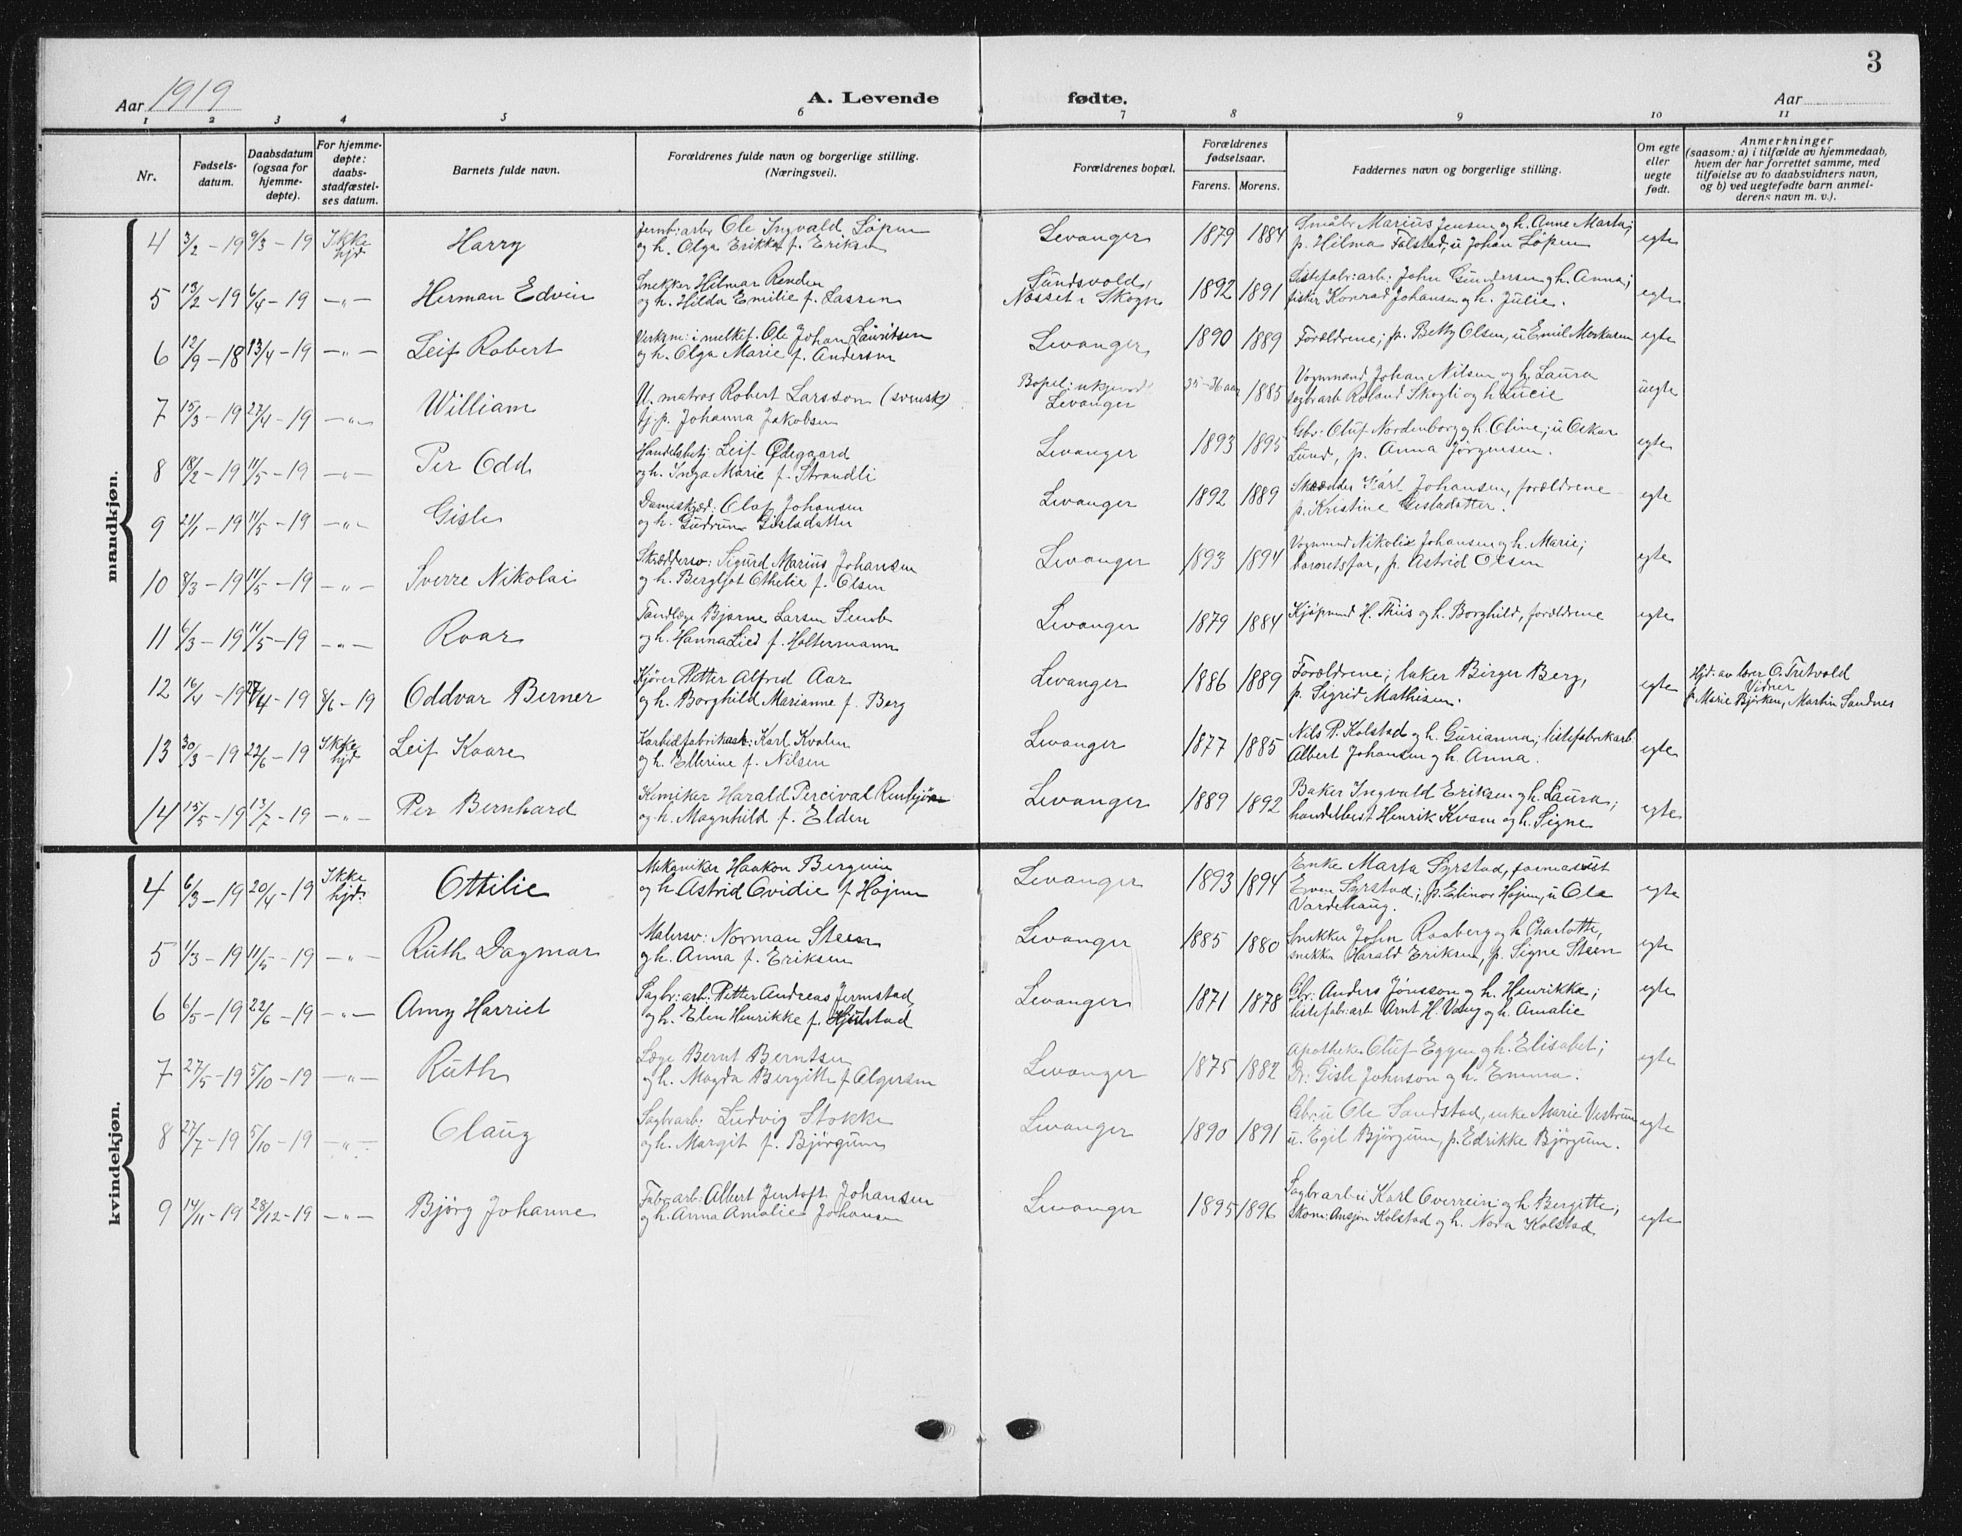 3
Aar 1919 A. Levende fødte. Aar
1 2 3 4 5 6 7 8 9 10 11
Nr. Fødsels-datum. Daabsdatum (ogsaa for hjemme-døpte). For hjemme-døpte: daabs-stadfæstel-ses datum. Barnets fulde navn. Forældrenes fulde navn og borgerlige stilling. (Næringsvei). Forældrenes bopæl. Forældrenes fødselsaar. Farens. Morens. Faddernes navn og borgerlige stilling. Om egte eller uegte født. Anmerkninger (saasom: a) i tilfælde av hjemmedaab, hvem der har forrettet samme, med tilføielse av to daabsvidners navn, og b) ved uegtefødte barn anmel-derens navn m. v.).
mandkjøn.
4 3/2-19 9/3-19 Ikke hjd Harry Jernb:arb: Ole Ingvald Løpen Levanger 1879 1884 Småbr Marius Jensen og h. Anne Marta; egte
og h. Olga Erikka f. Eriksen p. Hilma Falstad, u Johan Løpen
5 13/2-19 6/4-19 -„- Herman Edvin Snekker Hilmar Renden Sundsvold, 1892 1891 Listefab:arb: John Gundersen og h. Anna; egte
og h. Hilda Emilie f. Larsen Nesset i Skogn fisker Konrad Johansen og h. Julie.
6 12/9-18 13/4-19 -„- Leif Robert Verksm: i melkef. Ole Johan Lauritsen Levanger 1890 1889 Forældrene; p. Betty Olsen, u Emil Markusen egte
og h. Olga Marie f. Andersen
7 15/3-19 27/4-19 -„- William U. matros Robert Larsson (svensk) Bopel: ukjend 25-26 aar 1885 Vognmand Johan Nilsen og h. Laura uegte
tj.p. Johanna Jakobsen Levanger sagb:arb Roland Skogli og h Lucie
8 18/2-19 11/5-19 -„- Per Odd Handelsbetj: Leif Ødegaard Levanger 1893 1895 Gbr: Oluf Nordenborg og h. Oline; u Oskar egte
og h. Inga Marie f. Strandli Lund, p. Anna Jørgensen.
9 21/1-19 11/5-19 -„- Gisle Dameskræd: Olaf Johansen Levanger 1892 1889 Skrædder Karl Johansen, forældrene egte
og h. Gudrun Gisladatter p. Kristine Gisladatter.
10 8/3-19 11/5-19 -„- Sverre Nikolai Skræddersv: Sigurd Marius Johansen Levanger 1893 1894 Vognmand Nikolai Johansen og h. Marie; egte
og h. Bergljot Othilie f. Olsen barnetsfar, p. Astrid Olsen
11 6/3-19 11/5-19 -„- Roar Tandlæge Bjarne Larsen Semb Levanger 1879 1884 Kjøpmand H. Thiis og h. Borghild, forældrene egte
og h. Hanna Lied f. Holtermann
12 16/4-19 27/4-19 8/6-19 Oddvar Berner Kjører Petter Alfred Aar Levanger 1886 1889 Forældrene; baker Birger Berg, egte Hjd: av lærer O. Tritvold
og h. Borghild Marianne f. Berg p. Sigrid Mathisen. Vidner
p. Marie Bjørken, Martin Sandnes
13 30/3-19 22/6-19 Ikke hjd Leif Kaare Karbidfabrikarb: Karl Kvalen Levanger 1877 1885 Nils P. Kolstad og h. Gurianna; listefabrikarb egte
og h. Ellerine f. Nilsen Albert Johansen og h. Anna.
14 15/5-19 13/7-19 -„- Per Bernhard Kemiker Harald Percival Levanger 1889 1892 Baker Ingvald Eriksen og h. Laura; egte
og h. Magnhild f. Elden handelbest Henrik Kvam og h. Signe
kvindekjøn.
4 6/3-19 20/4-19 Ikke hjd: Ottilie Mekaniker Haakon Berguin Levanger 1893 1894 Enke Marta Gyrstad, egte
og h Astrid Ovidie f Højem Even Gyrstad; p. Elinor Højem, u Ole
Vardehaug.
5 1/3-19 11/5-19 -„- Ruth Dagmar Malersv: Norman Steen Levanger 1885 1880 Snekker John Raaberg og h Charlotte, egte
og h. Anna f. Eriksen snekker Harald Eriksen, p. Signe Steen
6 6/5-19 22/6-19 -„- Amy Harriet Sagbr:arb: Petter Andreas Jermstad Levanger 1871 1878 Gbr: Anders Jønsson og h. Henrikke; egte
og h. Elen Henrikke f. Hjulstad listefab:arb Arnt H. Vang og h. Amalie
7 27/5-19 5/10-19 -„- Ruth Læge Bernt Berntsen Levanger 1875 1882 Apotheker Oluf Eggen og h. Elisabet; egte
og h. Magda Bergitte f. Algersen Dr: Gisle Johnson og h. Emma.
8 27/7-19 5/10-19 -„- Olaug Sagbr:arb: Ludvig Stokke Levanger 1890 1891 Ole Sandstad, enke Marie Vestrum egte
og h. Margit f. Bjørgum u. Egil Bjørgum, p. Edrikke Bjørgum.
9 14/11-19 28/12-19 -„- Bjørg Johanne Fabr:arb: Albert Jentoft Johansen Levanger 1895 1896 Sagbr:arb Karl Overrein og h Bergitte, egte
og h. Anna Amalie Johansen skom: Ansjon Kolstad og h. Nora Kolstad